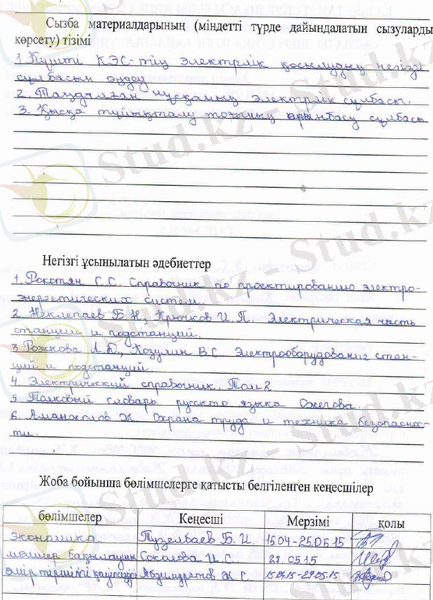 Сызба материалдарының (міндетті түрде дайындалатын сызуларды
көрсету) тізімі
1. Күшті КЭС-тің электрлік қосылудың негізгі
сұлбасын өңдеу
2. Таңдалған нұсқаның электрлік сұлбасы.
3. Қысқа тұйықталу тоғының орынбасу сұлбасы
Негізгі ұсынылатын әдебиеттер
1. Рокотян С.С. Справочник по проектированию электро-
энергетических систем.
2. Неклепаев Б.Н., Крючков И.П. Электрическая часть
станций и подстанций.
3. Рожкова Л.К., Козулин В.С Электрооборудование стан-
ций и подстанций.
4 Электрический справочник. Том 2
5 Толковый словарь русского языка Ожегова.
6. Аманжолов Ж. Охрана труда и техника безопаснос-
ти.
Жоба бойынша бөлімшелерге қатысты белгіленген кеңесшілер
бөлімшелер Кеңесші Мерзімі қолы
экономика Б.И. 15.04-25.05.15
Соколова И.С. 05.15
өмір тіршілігі Ж.С.
Stud.kz - Stud.kz